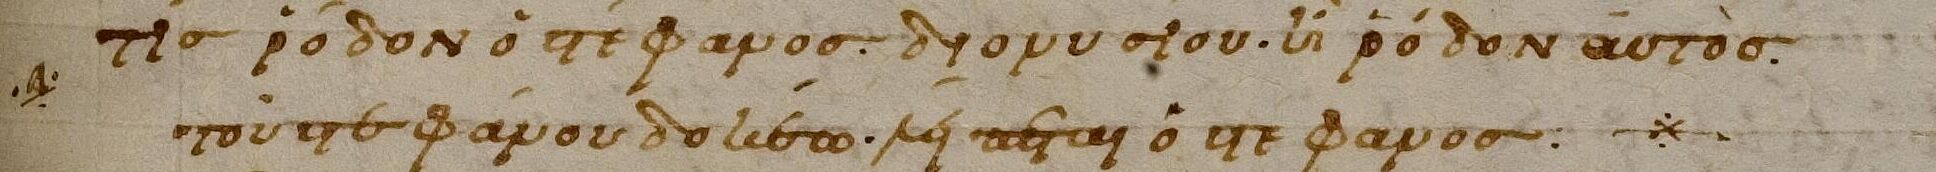 τίς ῥόδον ὁ στέφανος. διονυσίου. ἢ ῥόδον αὐτὸς.
τοῦ στεφάνου δοκέω. λείπεται ὁ στέφανος: